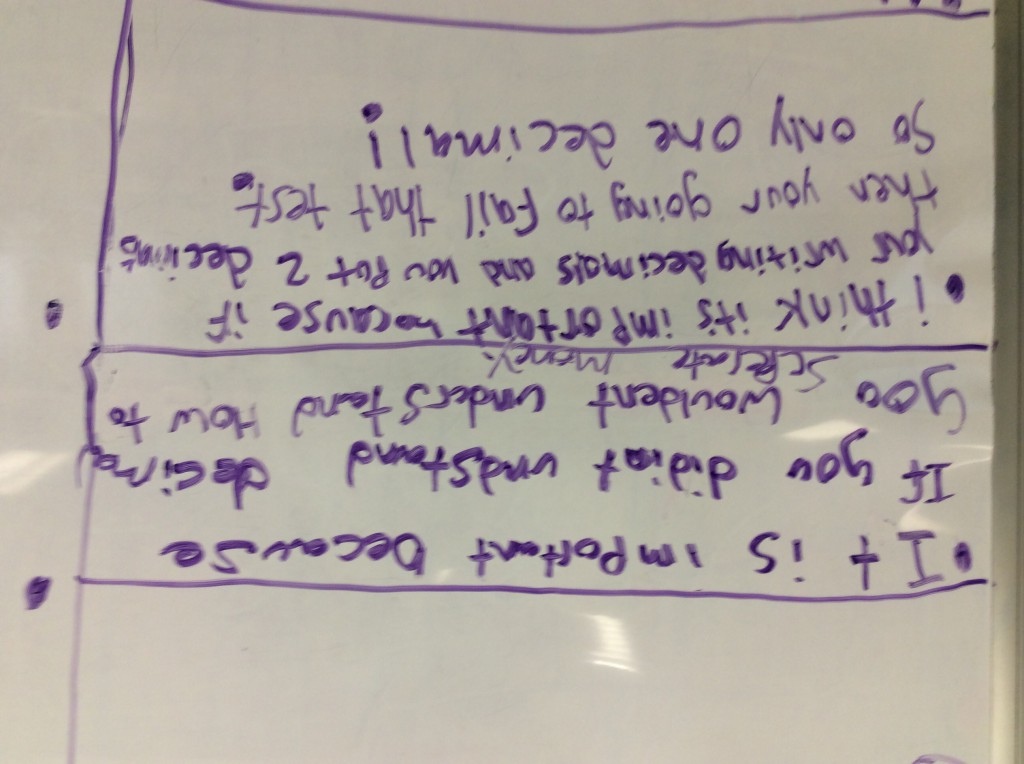 • It is important because
If you didint undstand decimal
you wouldent understand How to
seperate money
• i think its important because if
your writing decimals and you Put 2 decimals
then your going to fail that test.
So only one decimal!